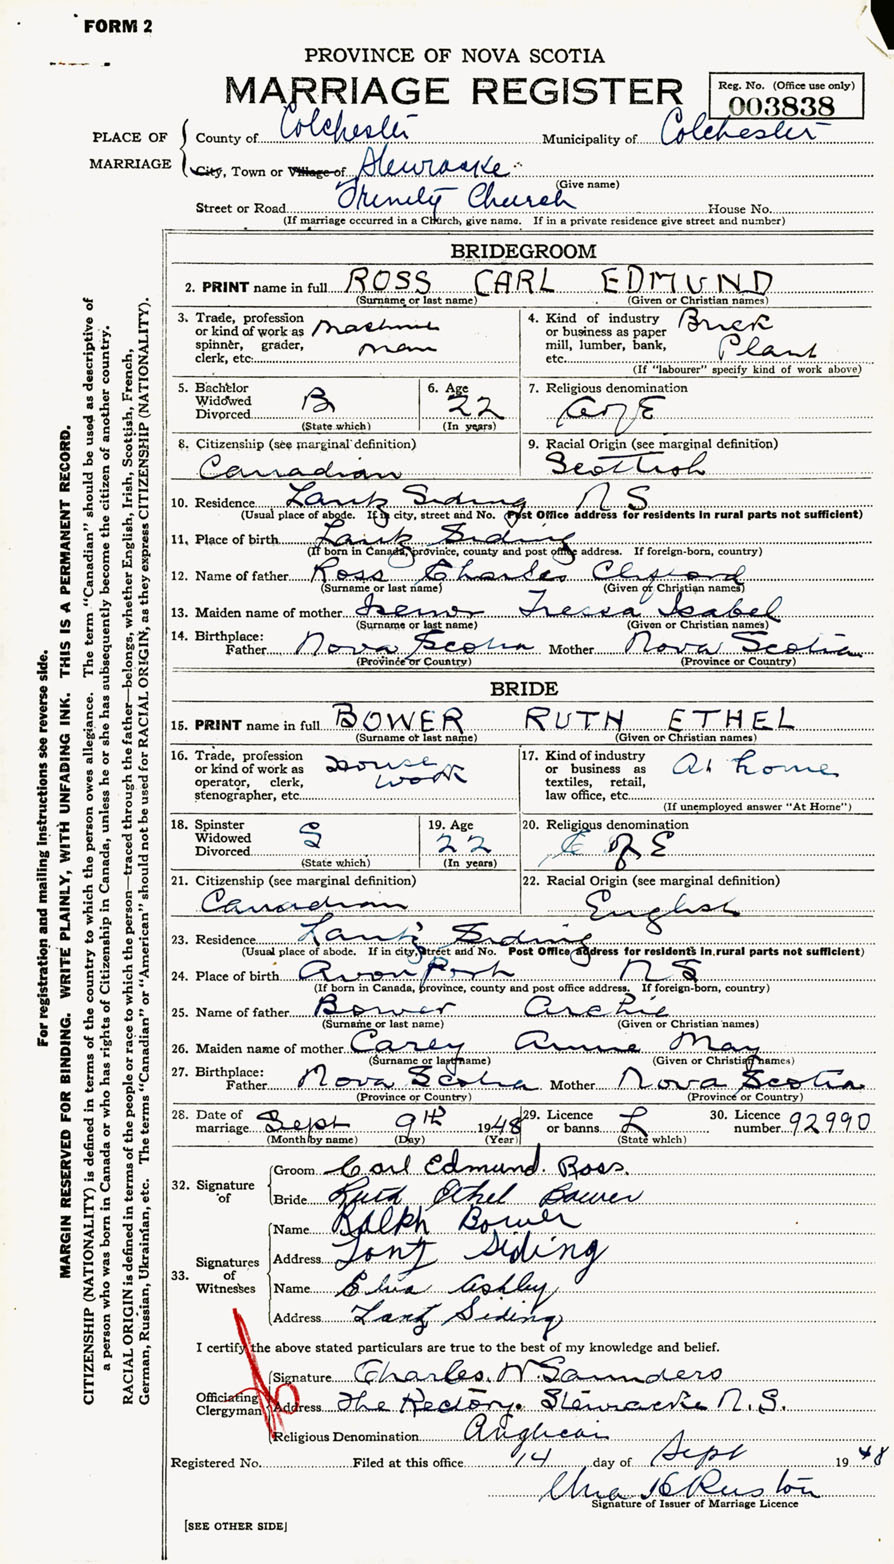 FORM 2
PROVINCE OF NOVA SCOTIA
MARRIAGE REGISTER
Reg. No. (Office use only)
003838
PLACE OF MARRIAGE
County of Colchester Municipality of Colchester
City, Town or Village of Stewiacke
(Give name)
Street or Road Trinity Church House No.
(If marriage occurred in a Church, give name. If in a private residence give street and number)
BRIDEGROOM
2. PRINT name in full ROSS CARL EDMUND
(Surname or last name) (Given or Christian names)
3. Trade, profession or kind of work as spinner, grader, clerk, etc. Machine man
4. Kind of industry or business as paper mill, lumber, bank, etc. Brick Plant
(If "labourer" specify kind of work above)
5. Bachelor Widowed Divorced B
(State which)
6. Age 22
(In years)
7. Religious denomination C of E
8. Citizenship (see marginal definition)
Canadian
9. Racial Origin (see marginal definition)
Scottish
10. Residence Lantz Siding N S
(Usual place of abode. If in city, street and No. Post Office address for residents in rural parts not sufficient)
11. Place of birth Lantz Siding
(If born in Canada, province, county and post office address. If foreign-born, country)
12. Name of father Ross Charles Clifford
(Surname or last name) (Given or Christian names)
13. Maiden name of mother Isenor Tressa Isabel
(Surname or last name) (Given or Christian names)
14. Birthplace:
Father Nova Scotia Mother Nova Scotia
(Province or Country) (Province or Country)
BRIDE
15. PRINT name in full BOWER RUTH ETHEL
(Surname or last name) (Given or Christian names)
16. Trade, profession or kind of work as operator, clerk, stenographer, etc. House work
17. Kind of industry or business as textiles, retail, law office, etc. At home
(If unemployed answer "At Home")
18. Spinster Widowed Divorced S
(State which)
19. Age 22
(In years)
20. Religious denomination
C of E
21. Citizenship (see marginal definition)
Canadian
22. Racial Origin (see marginal definition)
English
23. Residence Lantz Siding
(Usual place of abode. If in city, street and No. Post Office address for residents in rural parts not sufficient)
24. Place of birth Avonport N S
(If born in Canada, province, county and post office address. If foreign-born, country)
25. Name of father Bower Archie
(Surname or last name) (Given or Christian names)
26. Maiden name of mother Carey Annie May
(Surname or last name) (Given or Christian names)
27. Birthplace:
Father Nova Scotia Mother Nova Scotia
(Province or Country) (Province or Country)
28. Date of marriage Sept 9th 1948
(Month by name) (Day) (Year)
29. Licence or banns L
(State which)
30. Licence number 92990
32. Signature of
Groom Carl Edmund Ross.
Bride Ruth Ethel Bower
33. Signatures of Witnesses
Name Ralph Bower
Address Lantz Siding
Name Ashley
Address Lantz Siding
I certify the above stated particulars are true to the best of my knowledge and belief.
Officiating Clergyman
Signature Charles. W Saunders
Address The Rectory. Stewiacke N.S.
Religious Denomination Anglican
Registered No. Filed at this office 14 day of Sept 19 48
Signature of Issuer of Marriage Licence
[SEE OTHER SIDE]
For registration and mailing instructions see reverse side.
MARGIN RESERVED FOR BINDING. WRITE PLAINLY, WITH UNFADING INK. THIS IS A PERMANENT RECORD.
CITIZENSHIP (NATIONALITY) is defined in terms of the country to which the person owes allegiance. The term "Canadian" should be used as descriptive of
a person who was born in Canada or who has rights of Citizenship in Canada, unless he or she has subsequently become the citizen of another country.
RACIAL ORIGIN is defined in terms of the people or race to which the person—traced through the father—belongs, whether English, Irish, Scottish, French,
German, Russian, Ukrainian, etc. The terms "Canadian" or "American" should not be used for RACIAL ORIGIN, as they express CITIZENSHIP (NATIONALITY).